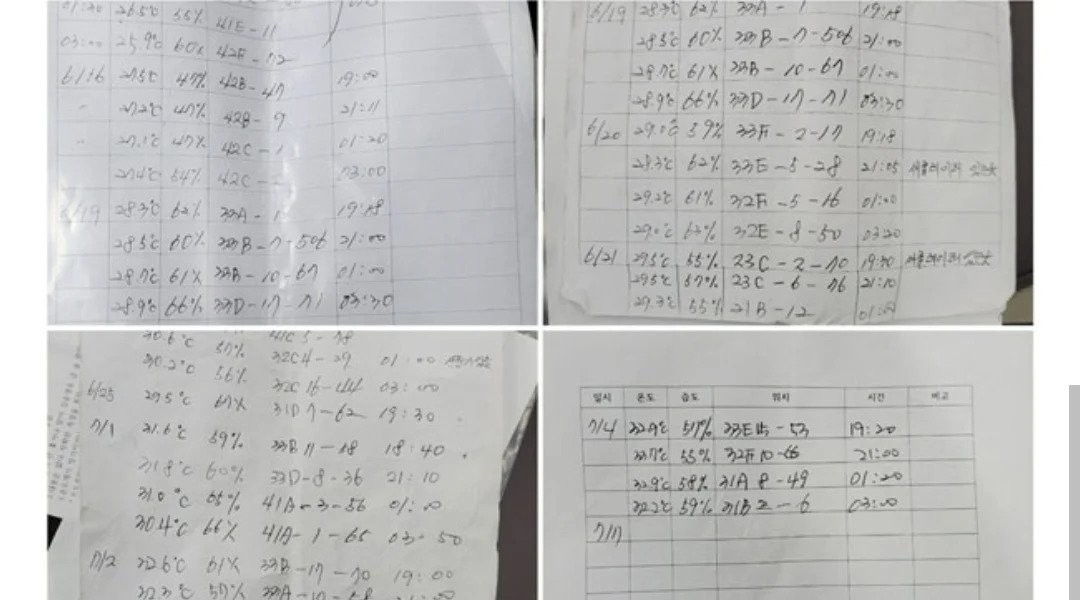 01:30 26.5℃ 55% 41E-11
03:00 25.9℃ 60% 42F-12
6/16 27.5℃ 47% 42B-47 19:00
" 27.2℃ 47% 42B-9 21:11
" 27.1℃ 47% 42C-1 01:20
27.4℃ 54% 42C- 03:00
6/19 28.3℃ 62% 33A-1 19:18
28.5℃ 60% 33B-7-506 21:00
28.7℃ 61% 33B-10-67 01:00
28.9℃ 66% 33D-17-71 03:30
6/19 28.3℃ 62% 33A-1 19:18
28.5℃ 60% 33B-7-506 21:00
28.7℃ 61% 33B-10-67 01:00
28.9℃ 66% 33D-17-71 03:30
6/20 29.0℃ 59% 33F-2-17 19:18
28.3℃ 62% 33E-5-28 21:05
29.2℃ 61% 32F-5-16 01:00
29.0℃ 63% 32E-8-50 03:20
6/21 29.5℃ 55% 23C-2-70
29.5℃ 57% 23C-6-76 21:10
29.3℃ 55% 21B-12
30.6℃ 57% 41C5-78
30.2℃ 56% 32C4-29 01:00
32C16-44 03:00
6/25 29.5℃ 67% 31D7-62 19:30
7/1 31.6℃ 59% 33B11-18 18:40
31.8℃ 60% 33D-8-36 21:10
31.0℃ 65% 41A-3-56 01:00
30.4℃ 66% 41A-1-65 03:50
7/2 32.6℃ 61% 33B-17-70 19:00
32.3℃ 57% 33A-17-58 21:00
일시 온도 습도 위치 시간 비고
7/4 32.9℃ 51% 33E15-53 19:20
33.7℃ 55% 32F10-66 21:00
32.9℃ 58% 31A8-49 01:20
32.2℃ 59% 31B2-6 03:00
7/7